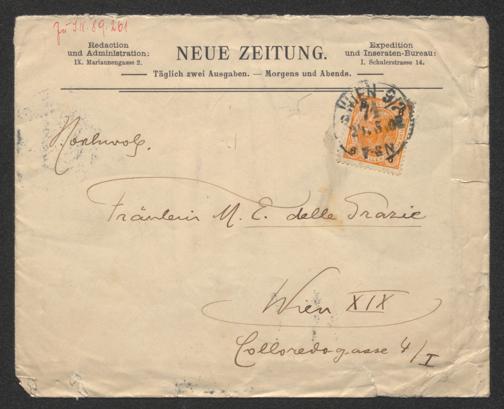 Zu I.N. 89.261
Redaction
und Administration:
IX. Mariannengasse 2.
NEUE ZEITUNG.
Expedition
und Inseraten-Bureau:
I. Schulerstrasse 14.
Täglich zwei Ausgaben. — Morgens und Abends.
WIEN 9/2
Hochwolg.
Fräulein M. E. delle Grazie
Wien XIX
Colloredogasse 4/I